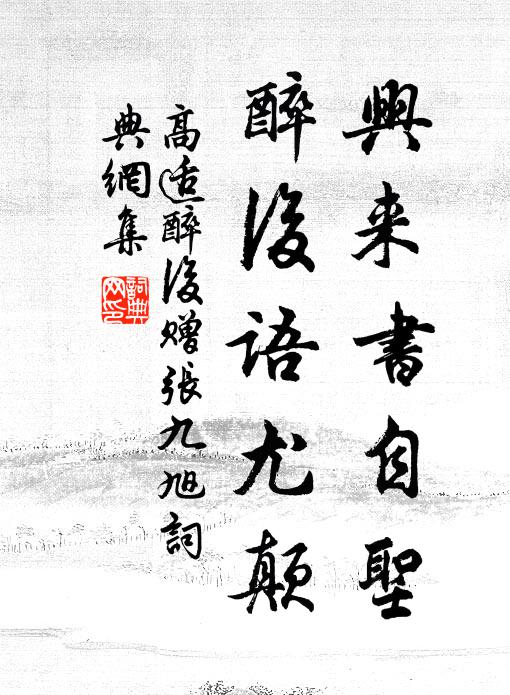 興来書自聖
醉後語尤顛
高适醉後贈張九旭詞
典網集
詞典
网印